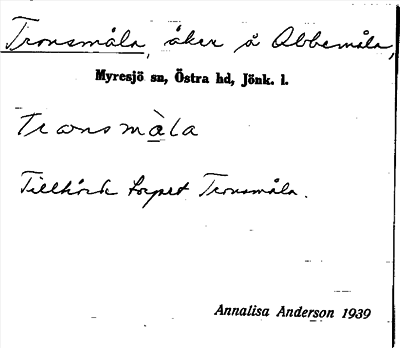 Tronsmåla, åker å Abbemåla,
Myresjö sn, Östra hd, Jönk. l.
Transmåla
Tillhört torpet Tronsmåla.
Annalisa Anderson 1939